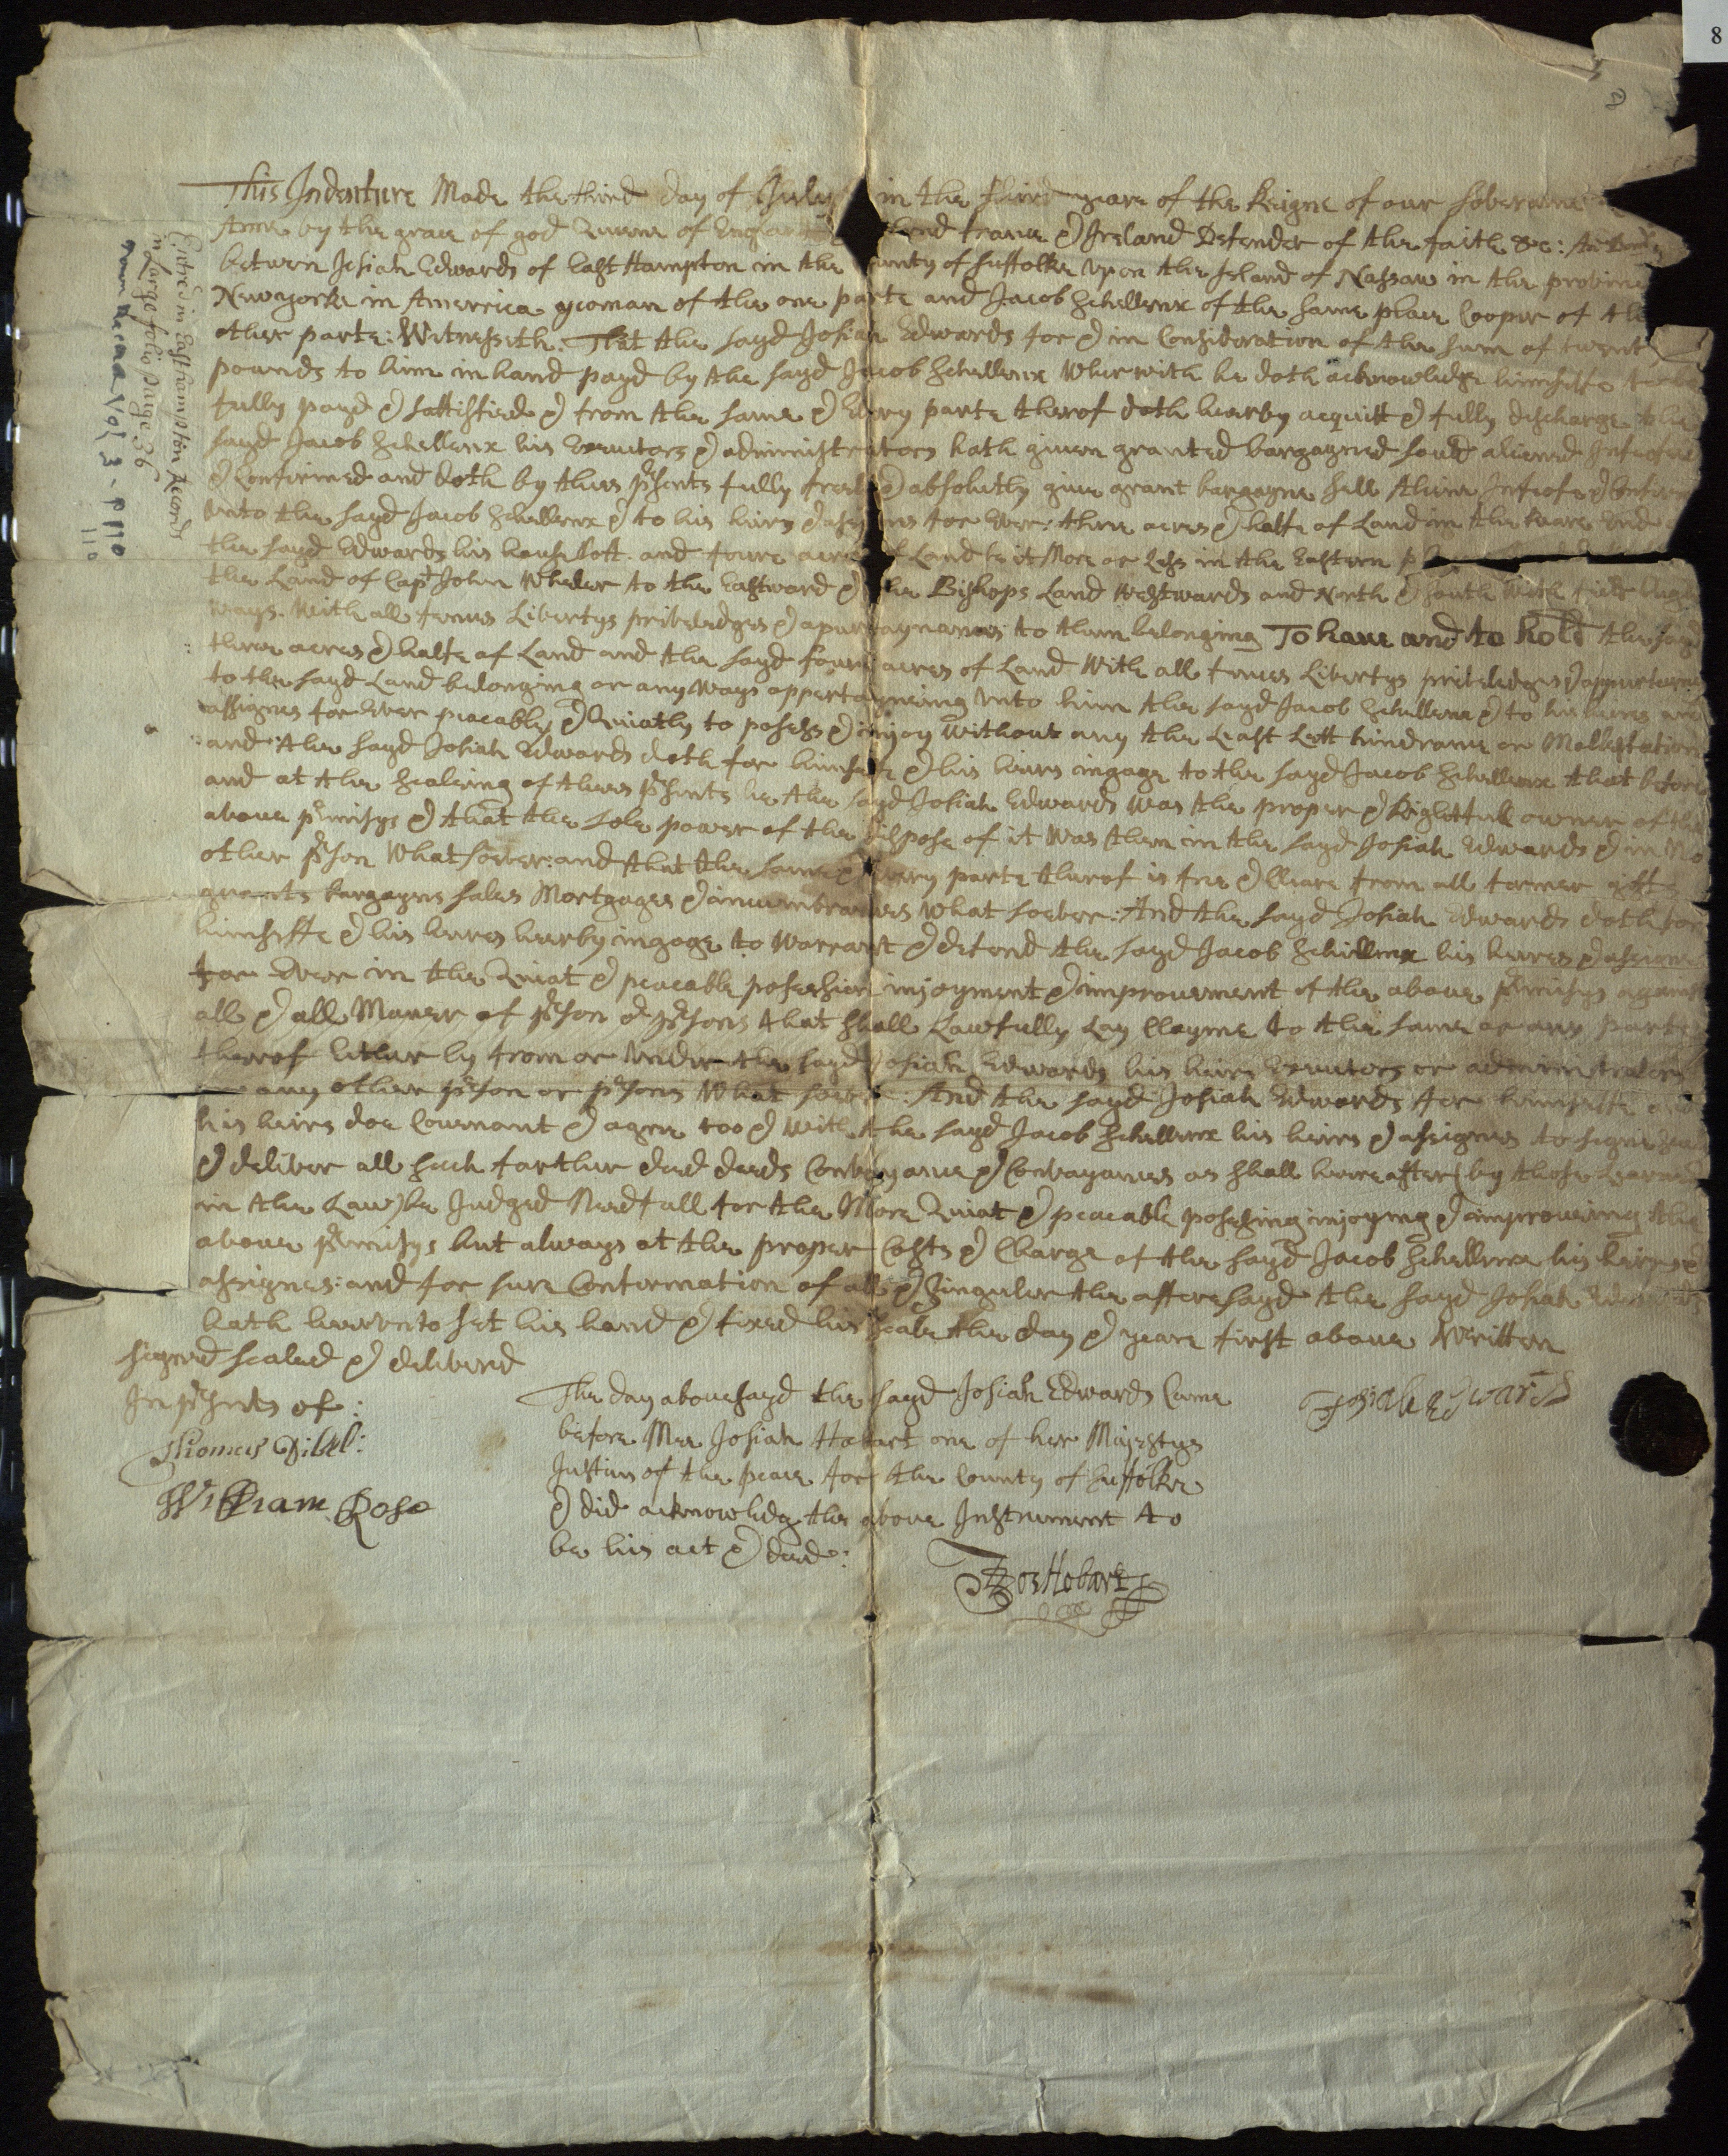 8
This Indenture Made the third day of July in the third yeare of the Reigne of our Soveraine
Anne by the grace of god Queene of England France & Ireland Defender of the faith &c:
between Josiah Edwards of East Hampton in the County of Suffolke upon the Island of Nassaw in the province
Newyorke in Amerrica yeoman of the one parte and Jacob Schellenx of the same place Cooper of the
other parte: Witnesseth. That the sayd Josiah Edwards for & in Consideration of the sum of twent
pounds to him in hand payd by the sayd Jacob Schellenx Wherwith he doth acknowledge himselfe to be
fully payd & sattisfied & from the same & Every parte therof doth hearby acquitt & fully discharge the
sayd Jacob Schellenx his Executors & administrators hath given granted bargagned sould aliened Infeofed
& Confirmed and doth by thees prsents fully freely & absolutly give grant bargagne sell Aliene Infeofe & Confirm
unto the sayd Jacob Schellenx & to his heirs & assignes for Ever: three acres & halfe of Land in the Reare End
the sayd Edwards his house Lott. and foure acres of Land be it More or Less in the Eastern p
the Land of Capt John Wheeler to the Eastward & the Bishops Land Westwards and North & South With
ways. With all fences Libertys priveledges & apurtaynances to them belonging To have and to hold the sayd
three acres & halfe of Land and the sayd foure acres of Land With all fences Libertys priveledges & appurtena
to the sayd Land belonging or any Ways appertayneing unto him the sayd Jacob Schellenx & to his heires and
assignes for Ever peacably & Quiatly to posess & injoy Without any the Least Lett hindrance or Mollestation
and the sayd Josiah Edwards doth for himselfe & his heires ingage to the sayd Jacob Schellenx that before
and at the sealeing of thees prsents he the sayd Josiah Edwards Was the proper & Rightfull owner of the
above prmisys & that the sole power of the dispose of it Was then in the sayd Josiah Edwards & in No
other prson What soever: and that the same & Every parte therof is free & Cleare from all former gifts
grants bargagns sales Mortgages & incumbrances What soever: And the sayd Josiah Edwards doth for
himselfe & his heires hearby ingage to Warrant & defend the sayd Jacob Schellenx his heires & assignes
for Ever in the Quiat & peacable possession injoyment & improvement of the above prmisys against
all & all Maner of prson & prsons that shall Lawfully Lay Clayme to the same or any parte
therof Either by from or under the sayd Josiah Edwards his heires Executors or administrators
any other prson or prsons What soever: And the sayd Josiah Edwards for himselfe and
his heires doe Covenant & agree too & With the sayd Jacob Schellenx his heires & assignes to signe seale
& deliver all such farther deed deeds Convayance & Convayances as shall hereafter (by those Learned
in the Law) be Judged Needfull for the More Quiat & peacable posessing injoying & improveing the
above prmisys but always at the proper Costs & Charge of the sayd Jacob Schellenx his heires &
assignes: and for sure Conformation of all & singuler the aforesayd the sayd Josiah Edwards
hath hereunto set his hand & fixed his seale the day & yeare first above Written
signed sealed & deliverd
In prsents of:
Thomas Dibel:
William Rose
The day abovesayd the sayd Josiah Edwards Came
before Mee Josiah Hobart one of her Majestys
Justices of the peace for the County of Suffolke
& did acknowledg the above Instrument to
be his act & deed:
Josiah Edwards
Jos Hobart
Entred in Easthampton Records
in Large folio page 36
Vol 3 - P 110
110